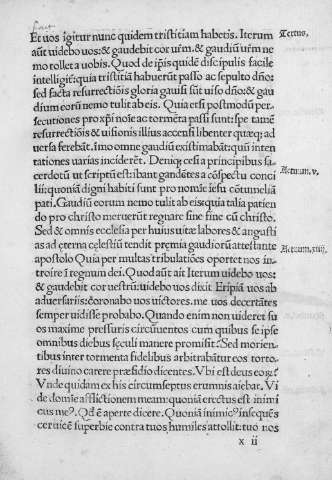 Et uos igitur nunc quidem tristitiam habetis. Iterum
aūt uidebo uos: & gaudebit cor ur̄m. & gaudiū ur̄m ne
mo tollet a uobis. Quod de ip̄is quidē discipulis facile
intelligit: quia tristitiā habuerūt passo ac sepulto dño:
sed facta resurrectiōis gloria gauisi sūt uiso dño: & gau
dium eorū nemo tulit ab eis. Quia etsi postmodū per⸗
secutiones pro xp̄i noīe ac tormēta passi sunt: spe tamē
resurrectiōis & uisionis illius accensi libenter quæq; ad
uersa ferebāt. īmo omne gaudiū existimabāt: quū inten
tationes uarias inciderēt. Deniq; cesi a principibus sa⸗
cerdotū ut scriptū est: ibant gaudētes a cōspectu conci
lii: quoniā digni habiti sunt pro nomīe iesu cōtumelia
pati. Gaudiū eorum nemo tulit ab eis: quia talia patien
do pro christo meruerūt regnare sine fine cū christo.
Sed & omnis ecclesia per huius uitæ labores & angusti
as ad eterna celestiū tendit premia gaudiorū attestante
apostolo Quia per multas tribulatiōes oportet nos in⸗
troire ī regnum dei. Quod aūt ait Iterum uidebo uos:
& gaudebit cor uestrū: uidebo uos dixit Eripiā uos ab
aduersariis: coronabo uos uictores. me uos decertātes
semper uidisse probabo. Quando enim non uideret su
os maxime pressuris circūuentos cum quibus se ipse
omnibus diebus seculi manere promisit? Sed morien⸗
tibus inter tormenta fidelibus arbitrabātur eos torto⸗
res diuino carere præsidio dicentes. Vbi est deus eorꝫ?
Vnde quidam ex his circumseptus erumnis aiebat. Vi
de domīe afflictionem meam: quoniā erectus est inimi
cus me⁹. Qd̄ ē aperte dicere. Quoniā inimic⁹ insequēs
ceruicē superbe contra tuos humiles attollit: tuo nos
x ii
Actuum. v.
Actuum. xiiii.